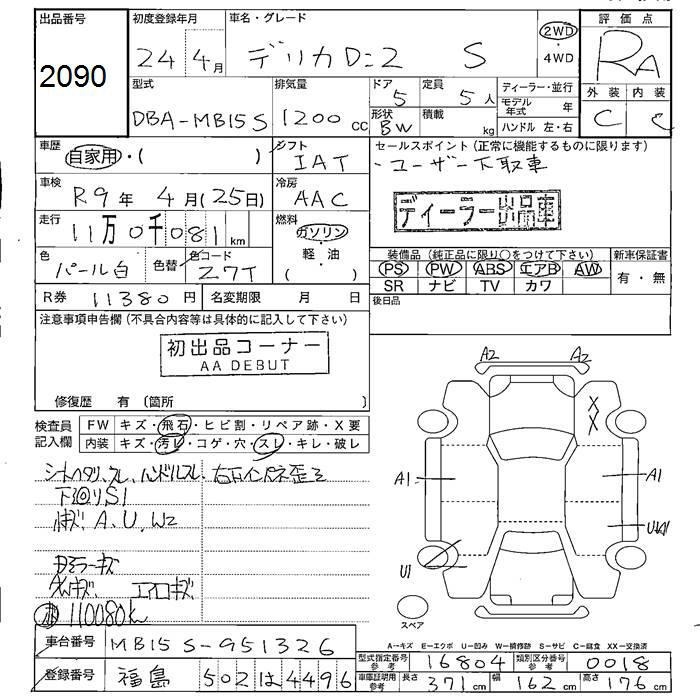 出品番号
2090
初度登録年月
24年4月
車名・グレード
デリカD:2 S
2WD
・
4WD
評価点
RA
外装 内装
C C
型式
DBA-MB15S
排気量
1200cc
ドア
5
形状
BW
定員
5人
積載
kg
ディーラー・並行
モデル年式 年
ハンドル 左・右
車歴
自家用・( )
シフト
IAT
セールスポイント(正常に機能するものに限ります)
・ユーザー下取車
車検
R9年4月(25日)
冷房
AAC
ディーラー出品車
走行
11万0千081km
燃料
ガソリン
・
軽・油
( )
色
パール白
色替
色コード
Z7T
装備品(純正品に限り○をつけて下さい)
新車保証書
PS PW ABS エアB AW
SR ナビ TV カワ
有・無
R券 11380円
名変期限 月 日
後日品
注意事項申告欄(不具合内容等は具体的に記入して下さい)
初出品コーナー
AA DEBUT
修復歴 有(箇所 )
検査員記入欄
FW キズ・飛石・ヒビ割・リペア跡・X要
内装 キズ・汚レ・コゲ・穴・スレ・キレ・破レ
シートヘタリ、スレ、ハンドルスレ、右Fインパネ歪ミ
下回りS1
A、U、W2
ドアミラーキズ
AWキズ エアロキズ
110080k
A2 A2
XX
A1 A1
U1
スペア
A-キズ E-エクボ U-凹み W-補修跡 S-サビ C-腐食 XX-交換済
車台番号 MB15S-951326
登録番号 福島 502 は 4496
型式指定番号参考 16804
類別区分番号参考 0018
車庫証明用参考 長さ371cm 幅162cm 高さ176cm